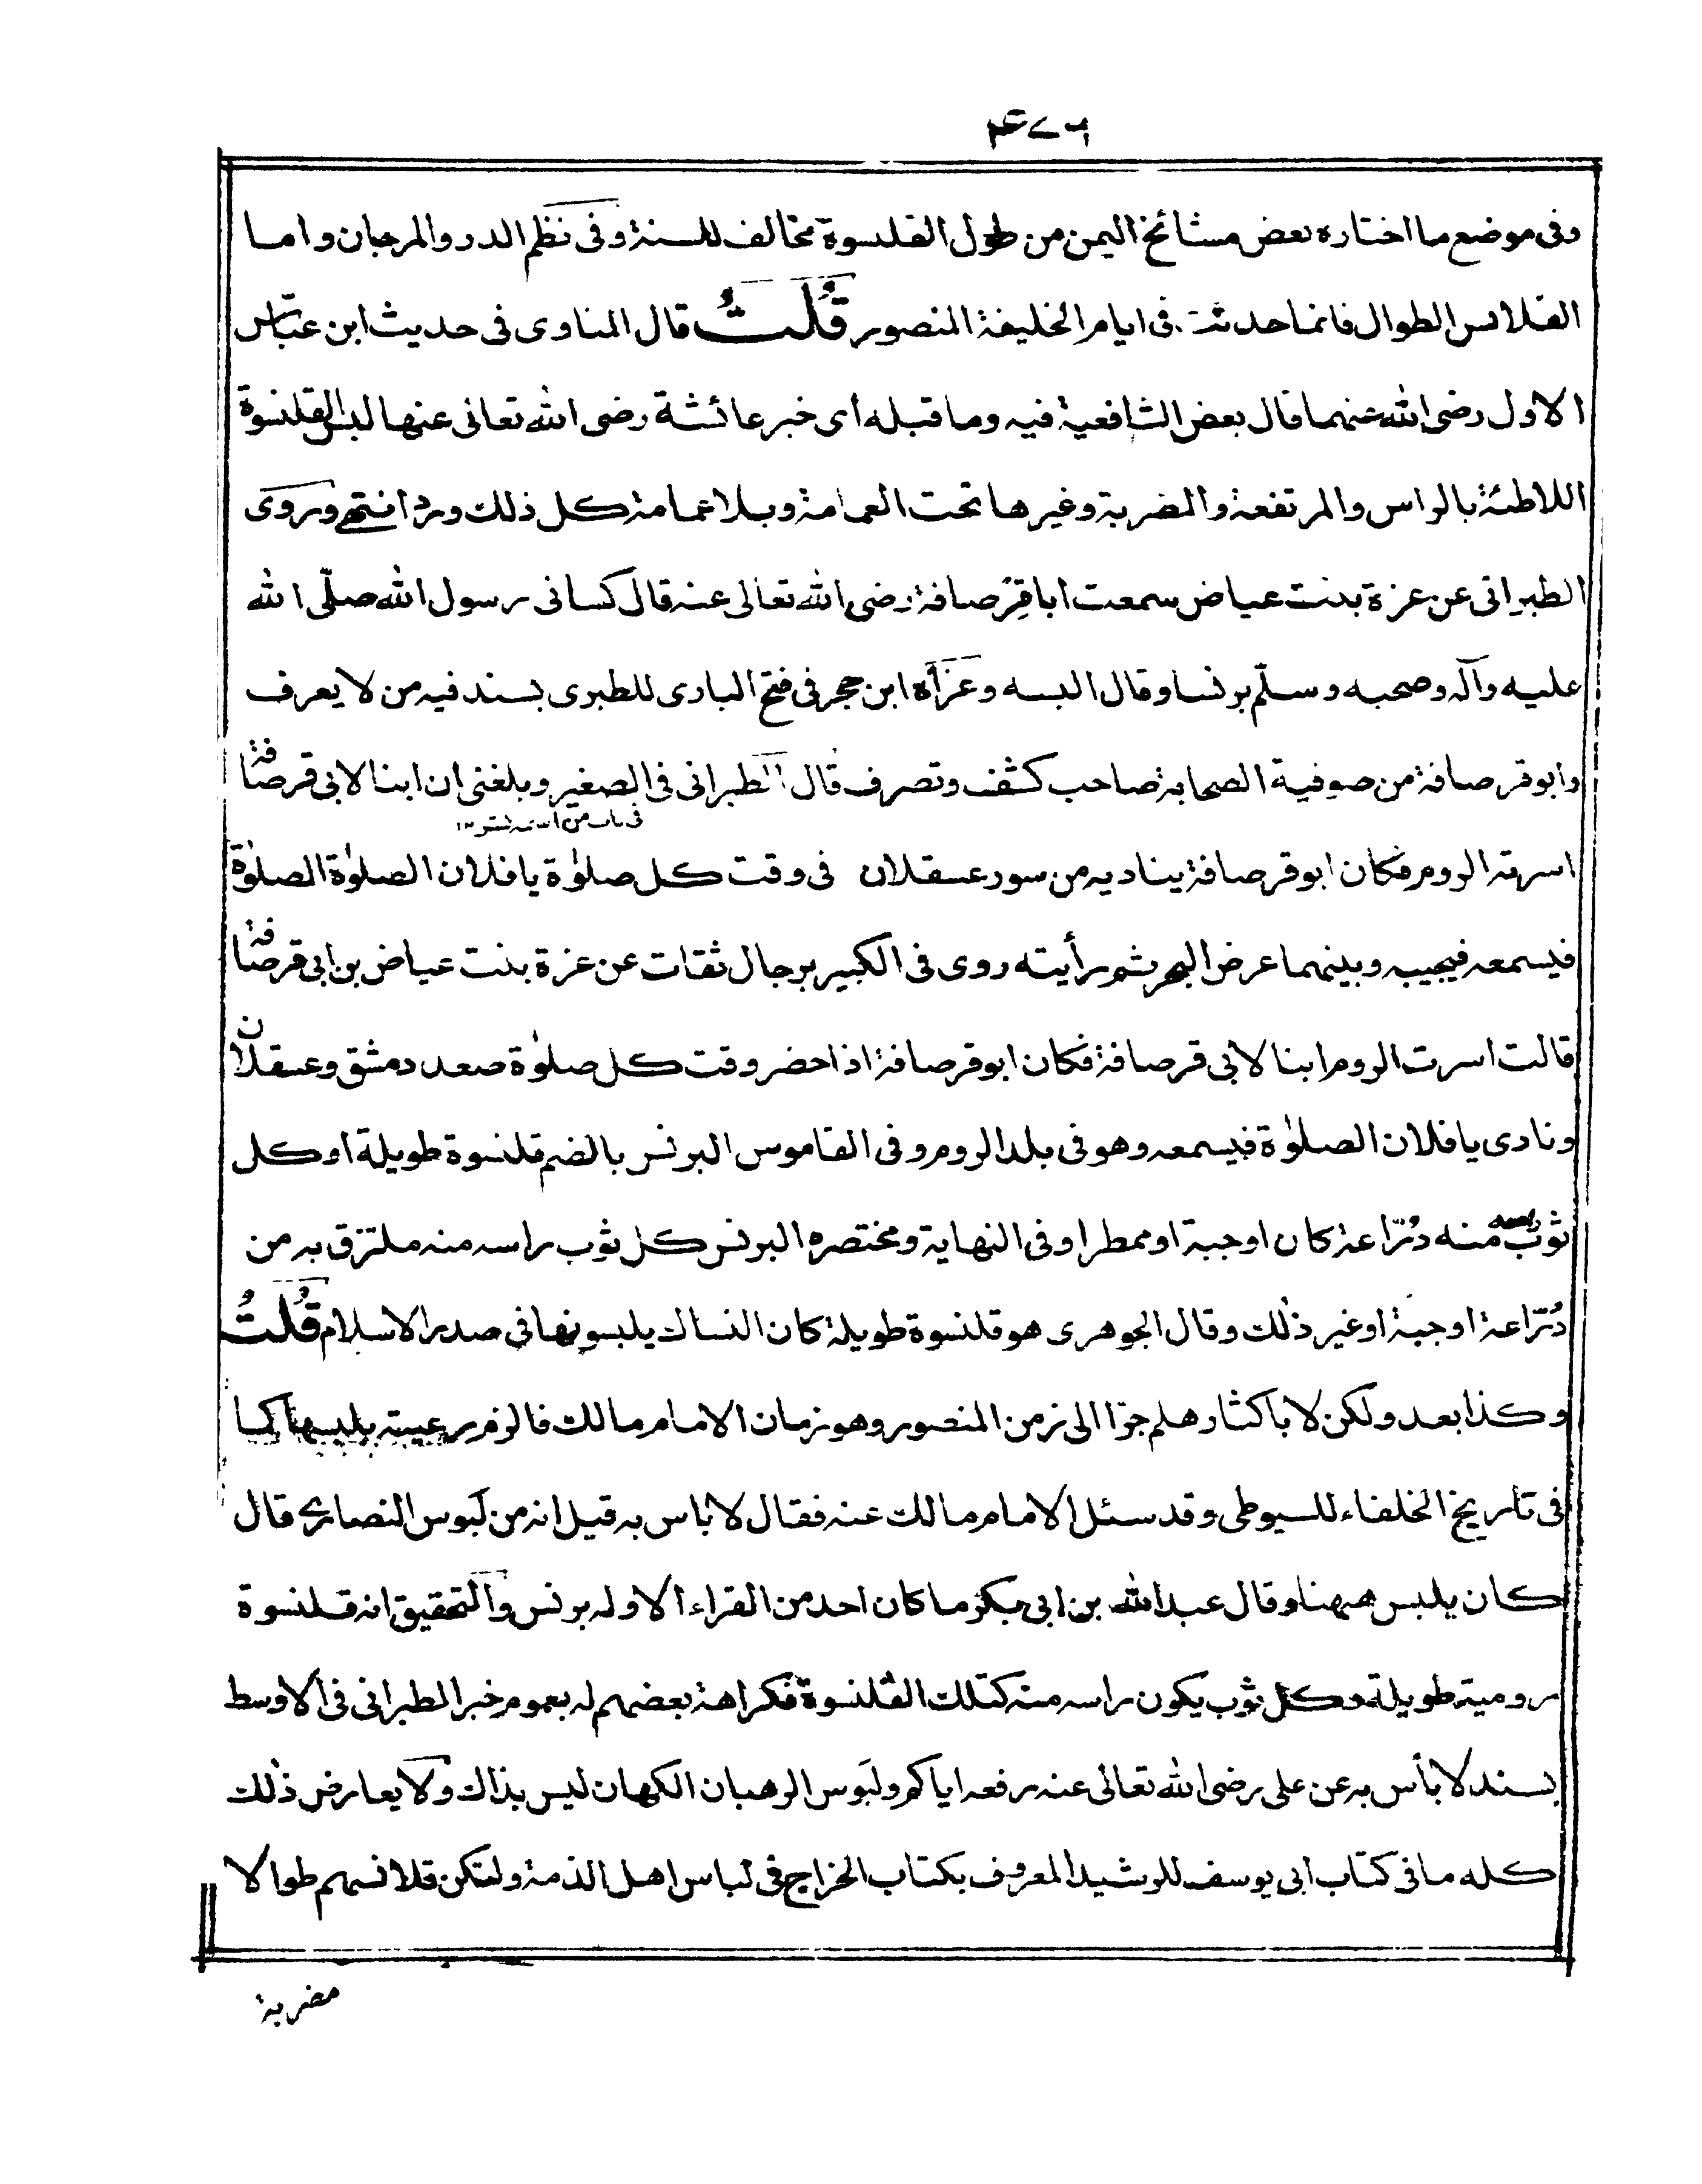 وفى موضع ما اختاره بعض مشائخ اليمن من طول القلنسوة مخالف للسنة وفى نظم الدر والمرجان واما
القلانس الطوال فانما حدثت فى ايام الخليفة المنصور قُلتُ قال المناوى فى حديث ابن عبّاس
الاول رضى الله عنهما قال بعض الشافعية فيه وما قبله أى خبر عائشة رضى الله تعالى عنها لبس القلنسوة
اللاطئة بالراس والمرتفعة والمضربة وغيرها تحت العمامة وبلا عمامة كل ذلك ورد انتهى وروى
الطبرانى عن عزة بنت عياض سمعت ابا قِرْصافة رضى الله تعالى عنه قال كسانى رسول الله صلّى الله
عليه وآله وصحبه وسلّم برنسا وقال البسه وعزاه ابن حجر فى فتح البارى للطبرى بسند فيه من لا يعرف
وابو قرصافة من صوفية الصحابة صاحب كشف وتصرف قال الطبرانى فى الصغير وبلغنى ان ابنا لابى قرصافة
اسرته الروم فكان ابو قرصافة يناديه من سور عسقلان فى وقت كل صلوٰة يا فلان الصلوٰة الصلوٰة
فيسمعه فيجيبه وبينهما عرض البحر ثم رأيته روى فى الكبير برجال ثقات عن عزة بنت عياض بن ابى قرصافة
قالت اسرت الروم ابنا لابى قرصافة فكان ابو قرصافة اذا حضر وقت كل صلوٰة صعد دمشق وعسقلان
ونادى يا فلان الصلوٰة فيسمعه وهو فى بلد الروم وفى القاموس البرنس بالضم قلنسوة طويلة او كل
ثوب راسه منه دُرّاعة كان او جبة او ممطرا وفى النهاية ومختصره البرنس كل ثوب راسه منه ملتزق به من
دُرّاعة او جبة او غير ذٰلك وقال الجوهرى هو قلنسوة طويلة كان النساك يلبسونها فى صدر الاسلام قُلتُ
وكذا بعد ولكن لا باكثار هلم جرّا الى زمن المنصور وهو زمان الامام مالك فالزم رعيته بلبسها كما
فى تاريخ الخلفاء للسيوطى وقد سئل الامام مالك عنه فقال لا باس به قيل انه من لَبوس النصارى قال
كان يلبس ههنا وقال عبد الله بن ابى بكر ما كان احد من القراء الا وله برنس والتحقيق انه قلنسوة
رومية طويلة وكل ثوب يكون راسه منه كتلك القلنسوة فكراهة بعضهم له بعموم خبر الطبرانى فى الاوسط
بسند لا بأس به عن على رضى الله تعالى عنه رفعه اياكم ولبَوس الرهبان الكهان ليس بذاك ولا يعارض ذٰلك
كله ما فى كتاب ابى يوسف للرشيد المعروف بكتاب الخراج فى لباس اهل الذمة ولتكن قلانسهم طوالا
مضربة